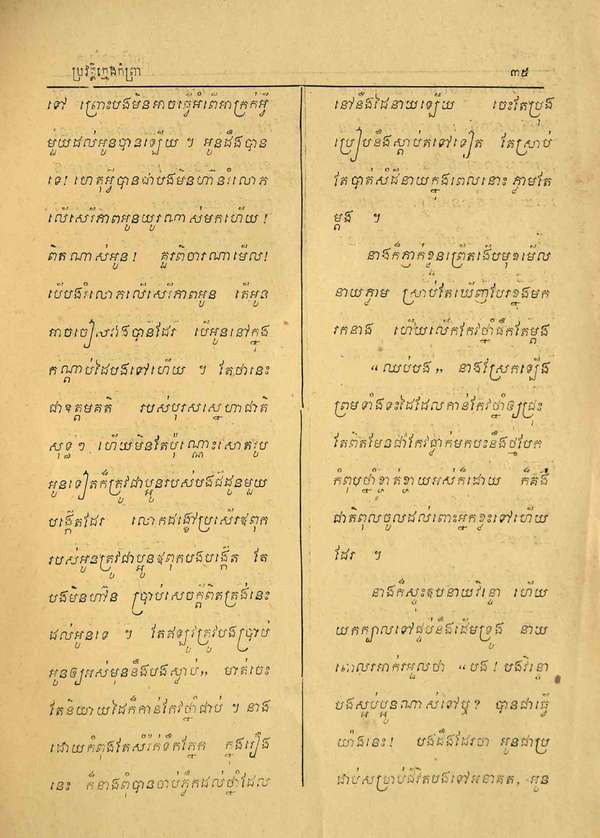 ប្រវត្តិក្មេងកំព្រា
៣៥
ទៅ ព្រោះបងមិនអាចធ្វើអំពើអាក្រក់អ្វី
មួយដល់អូនបានឡើយ ។ អូនដឹងបាន
ទេ! ហេតុអ្វីបានជាបងមិនហ៊ានរំលោភ
លើសេរីភាពអូនយូរណាស់មកហើយ!
ពិតណាស់អូន! គួរពិចារណាមើល!
បើបងរំលោភលើសេរីភាពអូន តើអូន
អាចចៀសវាងបានដែរ បើអូននៅក្នុង
កណ្ដាប់ដៃបងទៅហើយ ។ តែថានេះ
ជាឧត្តមគតិ របស់បុរសស្នេហាជាតិ
សុទ្ធៗ ហើយមិនតែប៉ុណ្ណោះសោតរូប
អូនទៀតក៏ត្រូវជាប្អូនរបស់បងជីដូនមួយ
បង្កើតដែរ លោកដង្ខៅប្រសើរឪពុក
របស់អូនត្រូវជាប្អូនឪពុកបងបង្កើត តែ
បងមិនហ៊ាន ប្រាប់សេចក្ដីពិតត្រង់នេះ
ដល់អូនទេ ។ តែឥឡូវត្រូវបងប្រាប់
អូនឲ្យអស់មុននឹងបងស្លាប់,, មាត់ចេះ
តែនិយាយដៃក៏កាន់កែវថ្នាំជាប់ ។ នាង
ដោយកំពុងតែសំរក់ទឹកភ្នែក ក្នុងរឿង
នេះ ក៏នាងពុំបានចាប់ភ្លឹកដល់ថ្នាំដែល
នៅនឹងដៃនាយឡើយ ចេះតែប្រុង
ប្រៀបនឹងស្ដាប់តទៅទៀត តែស្រាប់
តែបាត់សំដីនាយក្នុងពេលនោះភ្លាមតែ
ម្ដង ។
នាងក៏ភ្ញាក់ខ្លួនព្រើតងើបមុខមើល
នាយភ្លាម ស្រាប់តែឃើញបែរខ្នងមក
រកនាង ហើយលើកកែវថ្នាំផឹកតែម្ដង
“ឈប់បង,, នាងស្រែកឡើង
ព្រមទាំងទះដៃដែលកាន់កែវថ្នាំឲ្យជ្រុះ
តែពិតមែនជាកែវធ្លាក់មកបះនឹងថ្មបែក
កំពុបថ្នាំខ្ចាត់ខ្ចាយអស់ក៏ដោយ ក៏គង់
ជាតិពុលចូលដល់ពោះអ្នកខ្លះទៅហើយ
ដែរ ។
នាងក៏ស្ទុះឱបនាយវិន្ទោ ហើយ
យកក្បាលទៅផ្ទប់នឹងដើមទ្រូង នាយ
ពោលរអាក់រអួលថា “បង! បងវិន្ទោ
បងស្អប់ប្អូនណាស់ទៅឬ? បានជាធ្វើ
យ៉ាងនេះ! បងដឹងដែរថា អូនជាប្រ
ជាប់សម្រាប់ជីវិតបងទៅអនាគត, អូន